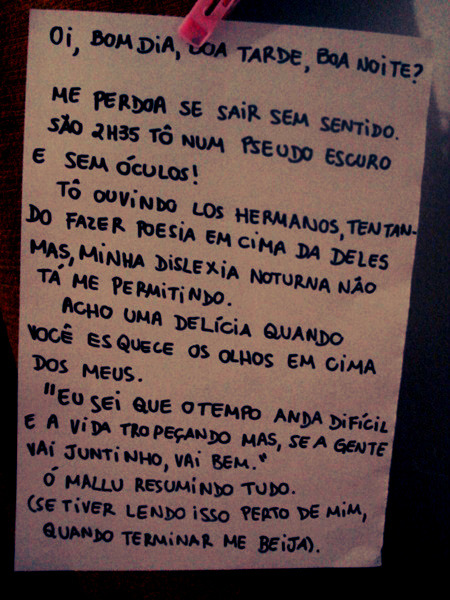 OI, BOM DIA, BOA TARDE, BOA NOITE?
ME PERDOA SE SAIR SEM SENTIDO.
SÃO 2H35 TÔ NUM PSEUDO ESCURO
E SEM ÓCULOS!
TÔ OUVINDO LOS HERMANOS, TENTAN-
DO FAZER POESIA EM CIMA DA DELES
MAS, MINHA DISLEXIA NOTURNA NÃO
TÁ ME PERMITINDO.
ACHO UMA DELÍCIA QUANDO
VOCÊ ESQUECE OS OLHOS EM CIMA
DOS MEUS.
"EU SEI QUE O TEMPO ANDA DIFÍCIL
E A VIDA TROPEÇANDO MAS, SE A GENTE
VAI JUNTINHO, VAI BEM."
Ó MALLU RESUMINDO TUDO.
(SE TIVER LENDO ISSO PERTO DE MIM,
QUANDO TERMINAR ME BEIJA).